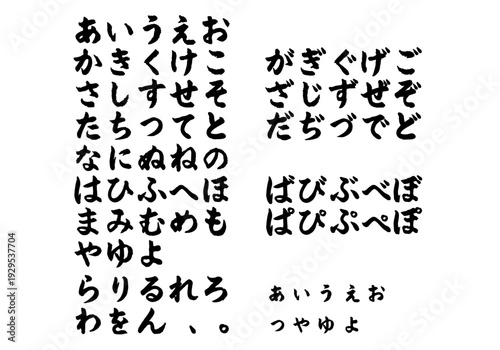 あいうえお
かきくけこ
さしすせそ
たちつてと
なにぬねの
はひふへほ
まみむめも
やゆよ
らりるれろ
わをん、。
がぎぐげご
ざじずぜぞ
だぢづでど
ばびぶべぼ
ぱぴぷぺぽ
ぁぃぅぇぉ
っゃゅょ
Adobe Stock | #1929537704